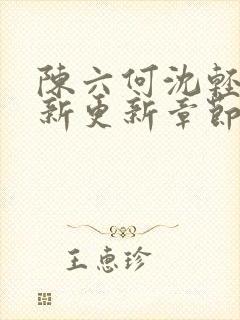 陳六何沈輕
新更新章節
王惠珍